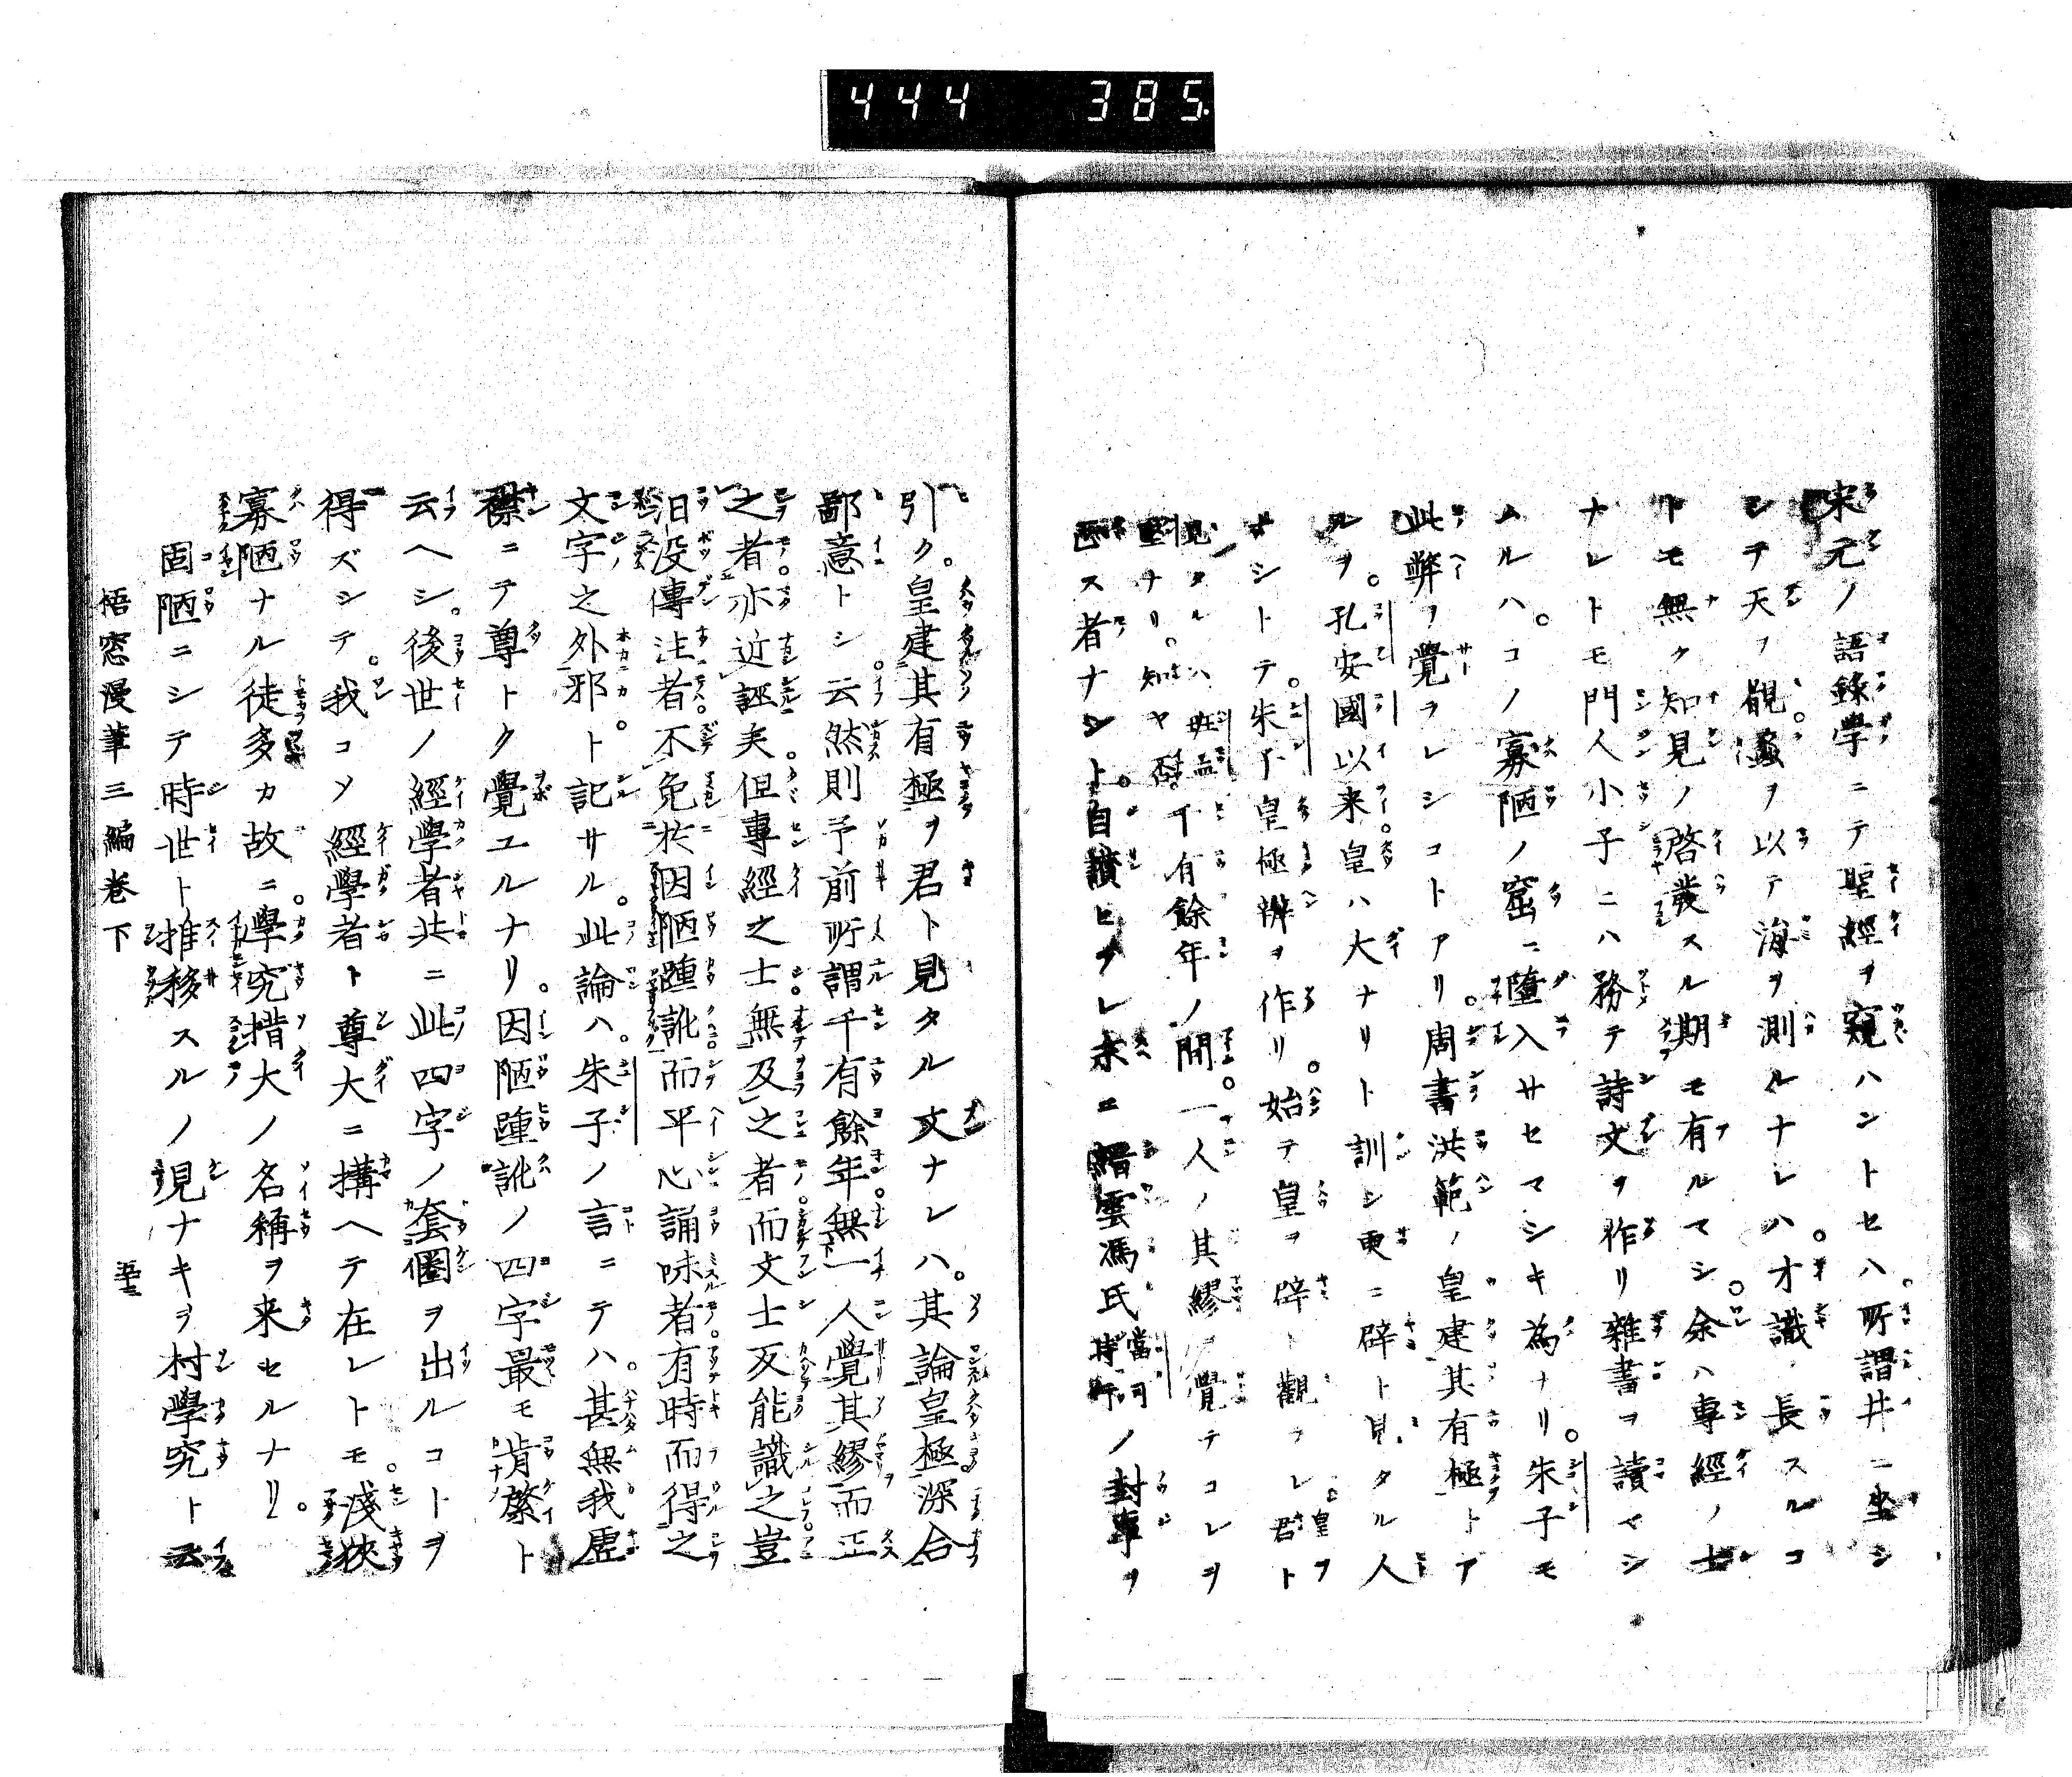 444 385
宋元ノ語錄學ニテ聖經ヲ窺ハントセハ。所謂井ニ坐シ
シテ天ヲ観。蠡ヲ以テ海ヲ測ルナレハ。才識ノ長スルコ
トモ無ク知見ノ啓發スル期モ有ルマシ。余ハ專經ノ士
ナレトモ門人小子ニハ務テ詩文ヲ作リ雜書ヲ讀マシ
ムルハ。コノ寡陋ノ窟ニ墮入サセマシキ為ナリ。朱子モ
此弊ヲ覺ラレシコトアリ。周書洪範ノ皇建其有極トア
ルヲ。孔安國以来皇ハ大ナリト訓シ更ニ辟ト見タル人
ナシトテ。朱子皇極辨ヲ作リ。始テ皇ヲ辟ト觀ラレ君ト
見タルハ班孟
堅ナリ。知ヤ否。千有餘年ノ間。一人ノ其繆ヲ覺テコレヲ
巳ス者ナシト。自讃セラレ未ニ縉雲馮氏當時行司ノ封事ヲ
引ク。皇建其有極ヲ君ト見タル文ナレハ。其論皇極深合
鄙意トシ。云然則予前所謂千有餘年無一人覺其繆而正
之者。亦近誣矣。但專經之士。無及之者。而文士反能識之。豈
汩没傳注者。不免於因陋踵訛。而平心誦味者。有時而得之
文字之外邪。ト記サル。此論ハ。朱子ノ言ニテハ。甚無我虚
襟ニテ尊トク覺ユルナリ。因陋踵訛ノ四字最モ肯綮ト
云ヘシ。後世ノ經學者共ニ此四字ノ套圏ヲ出ルコトヲ
得ズシテ。我コソ經學者ト尊大ニ搆ヘテ在レトモ。淺狹
寡陋ナル徒多カ故ニ。學究措大ノ名稱ヲ来セルナリ。
固陋ニシテ時世ト推移スルノ見ナキヲ村學究ト云
梧窓漫筆三編巻下